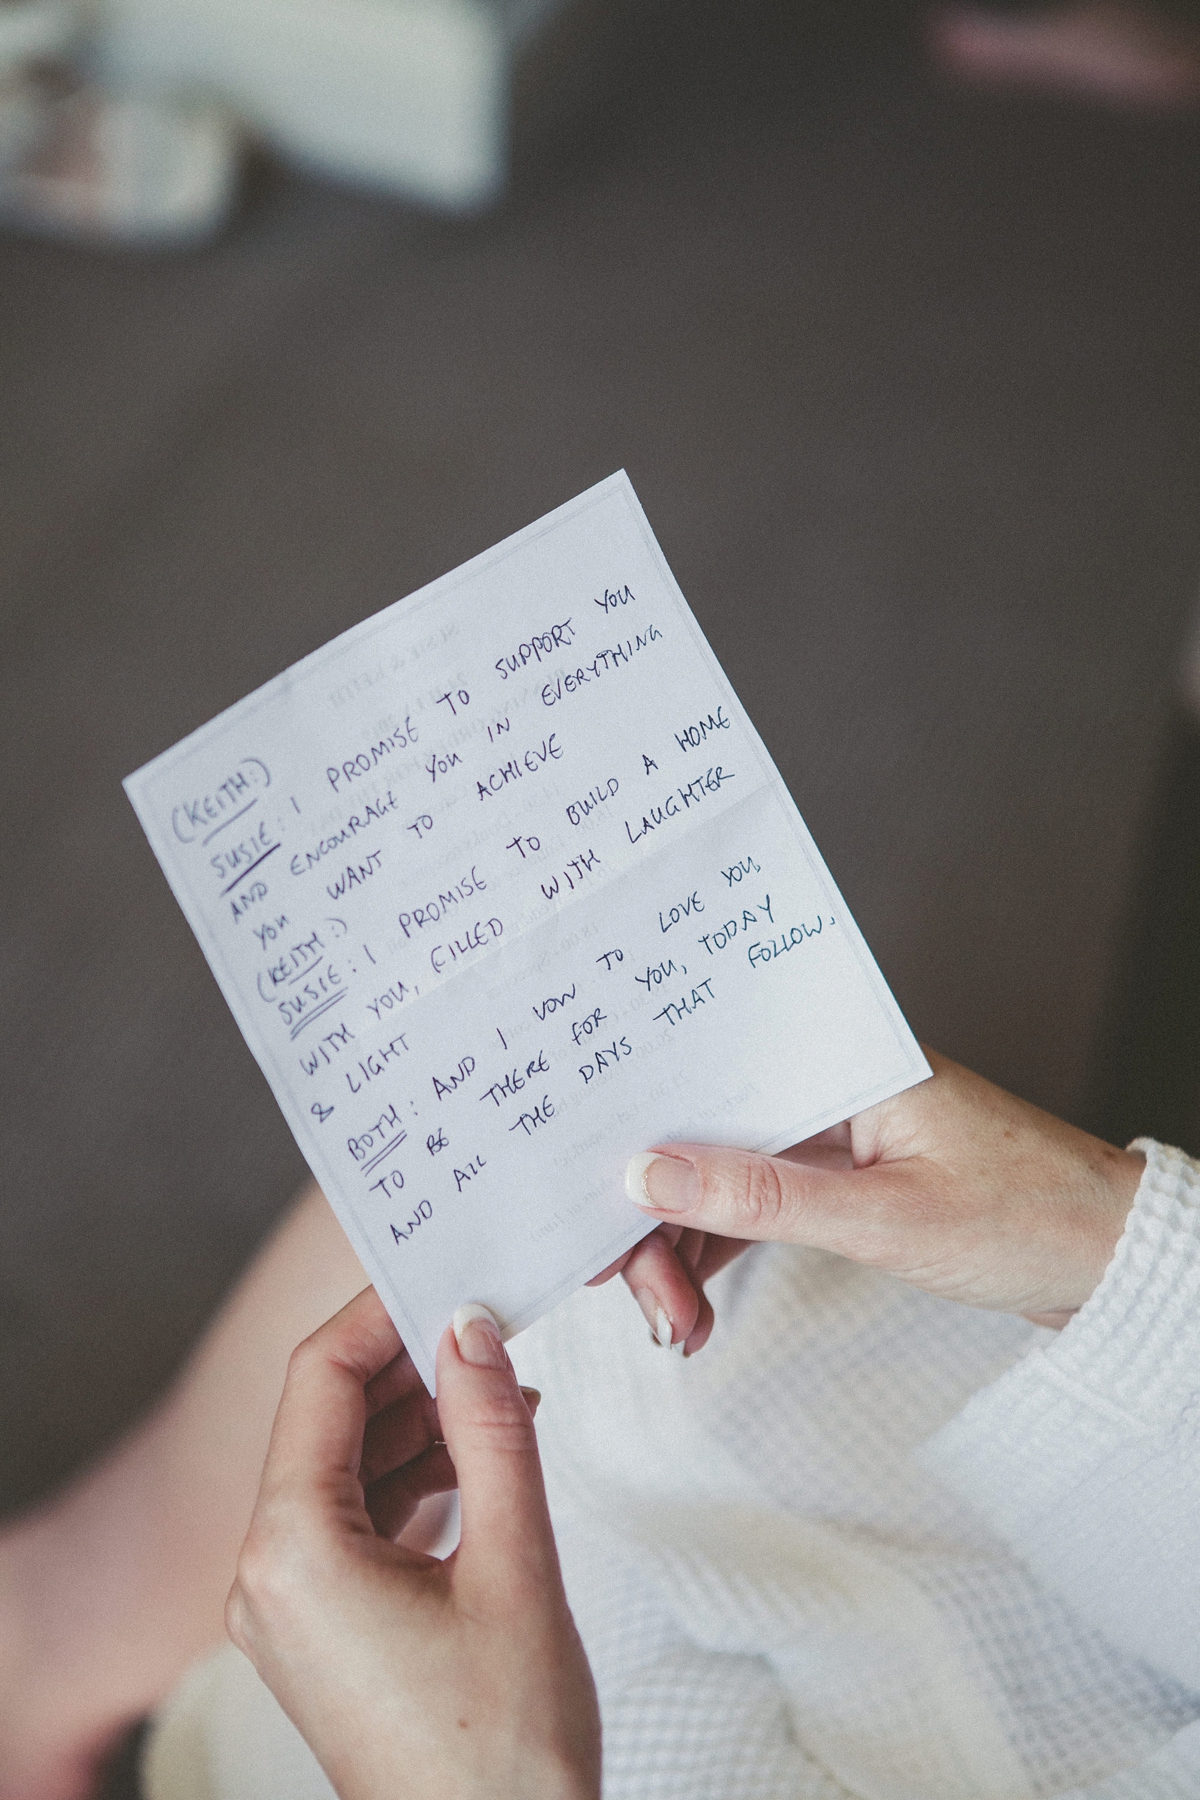 (KEITH:)
SUSIE: I PROMISE TO SUPPORT YOU
AND ENCOURAGE YOU IN EVERYTHING
YOU WANT TO ACHIEVE
(KEITH:)
SUSIE: I PROMISE TO BUILD A HOME
WITH YOU, FILLED WITH LAUGHTER
& LIGHT
BOTH: AND I VOW TO LOVE YOU,
TO BE THERE FOR YOU, TODAY
AND ALL THE DAYS THAT FOLLOW.